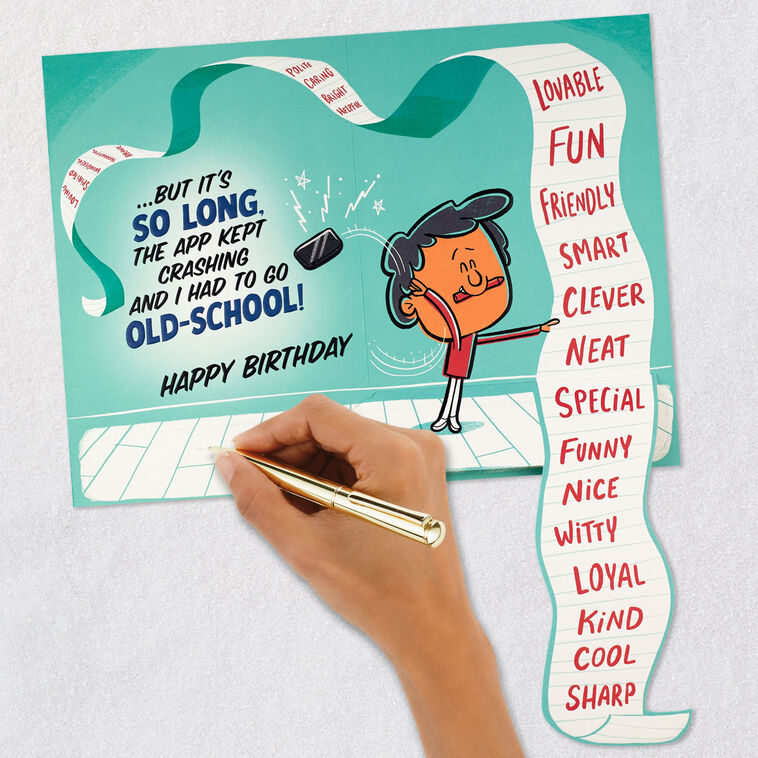 ...BUT IT'S
SO LONG,
THE APP KEPT
CRASHING
AND I HAD TO GO
OLD-SCHOOL!
HAPPY BIRTHDAY
POLITE
CARING
BRIGHT
HELPFUL
SPIRITED
LOVING
LOVABLE
FUN
FRIENDLY
SMART
CLEVER
NEAT
SPECIAL
FUNNY
NICE
WITTY
LOYAL
KIND
COOL
SHARP